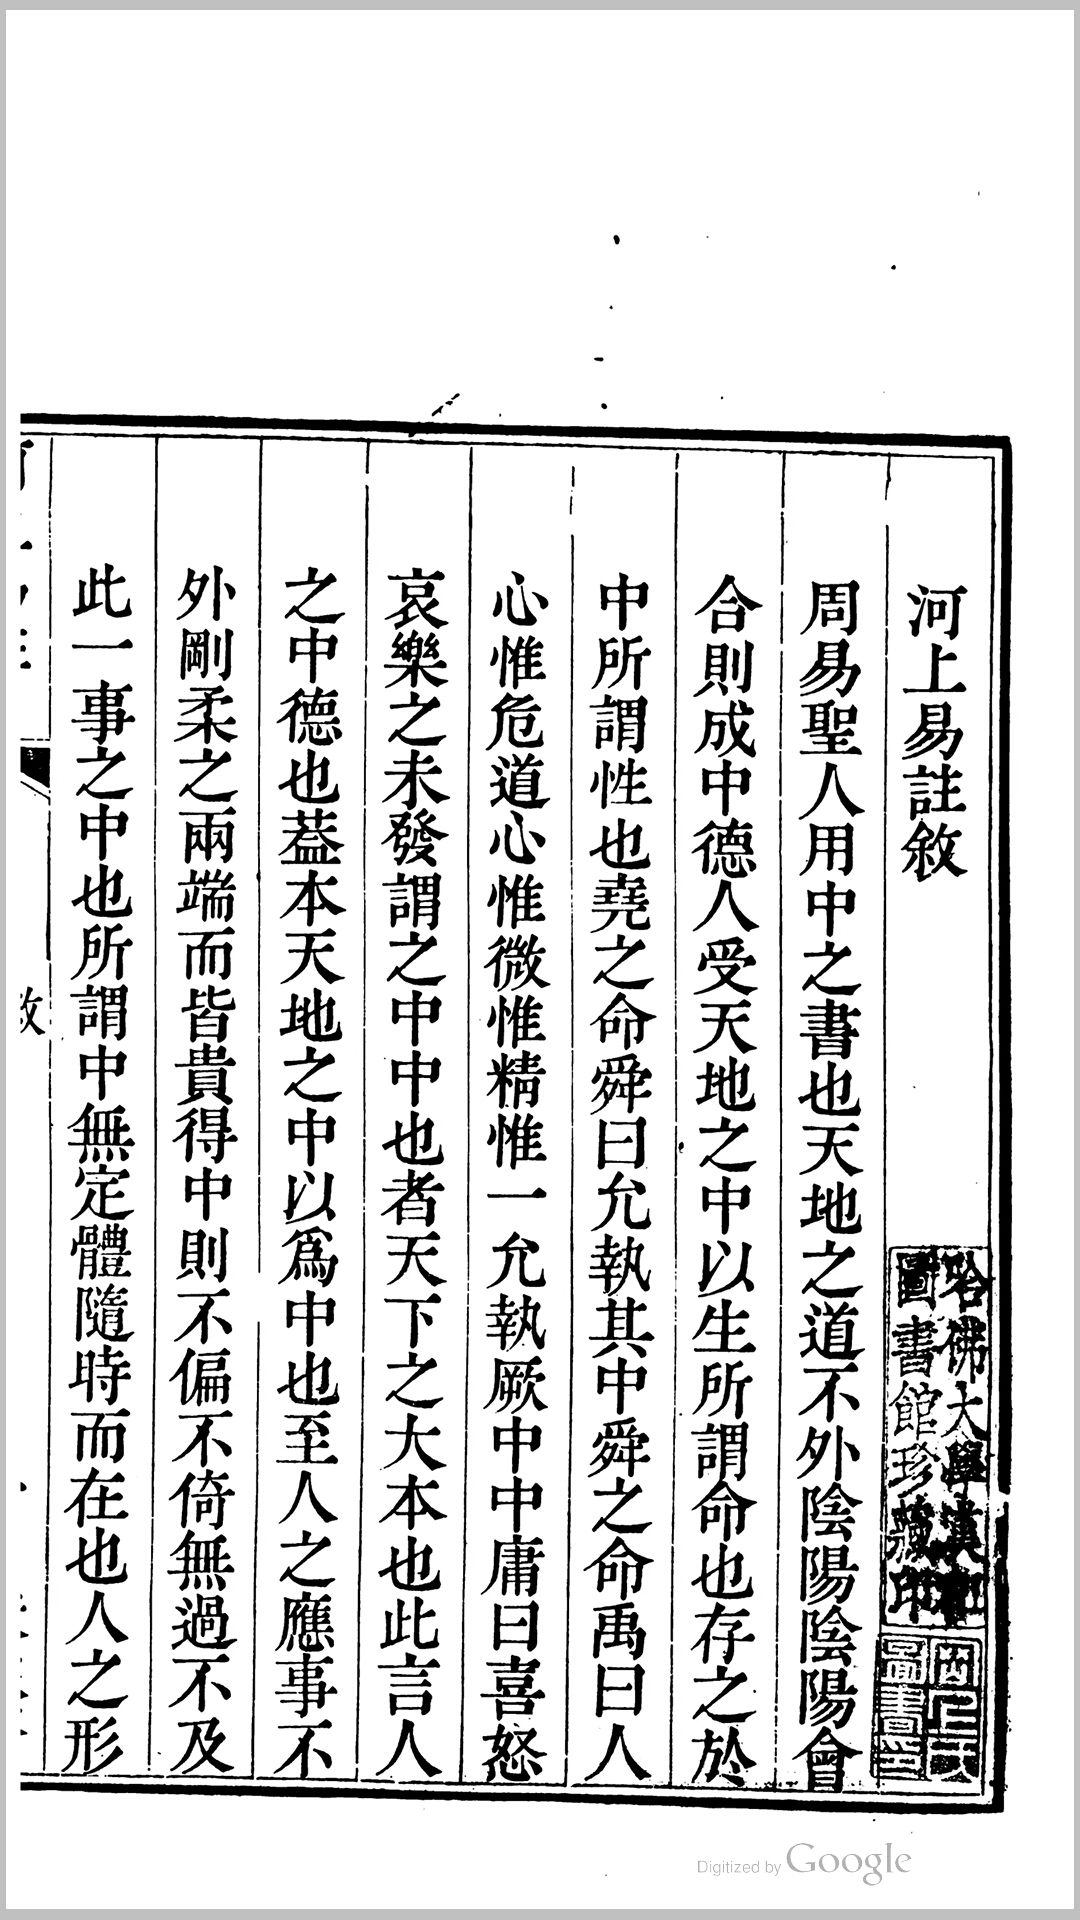 河上易註敘
哈佛大學漢和
圖書館珍藏印
周易聖人用中之書也天地之道不外陰陽陰陽會
合則成中德人受天地之中以生所謂命也存之於
中所謂性也堯之命舜曰允執其中舜之命禹曰人
心惟危道心惟微惟精惟一允執厥中中庸曰喜怒
哀樂之未發謂之中中也者天下之大本也此言人
之中德也葢本天地之中以爲中也至人之應事不
外剛柔之兩端而皆貴得中則不偏不倚無過不及
此一事之中也所謂中無定體隨時而在也人之形
敘
Digitized by Google